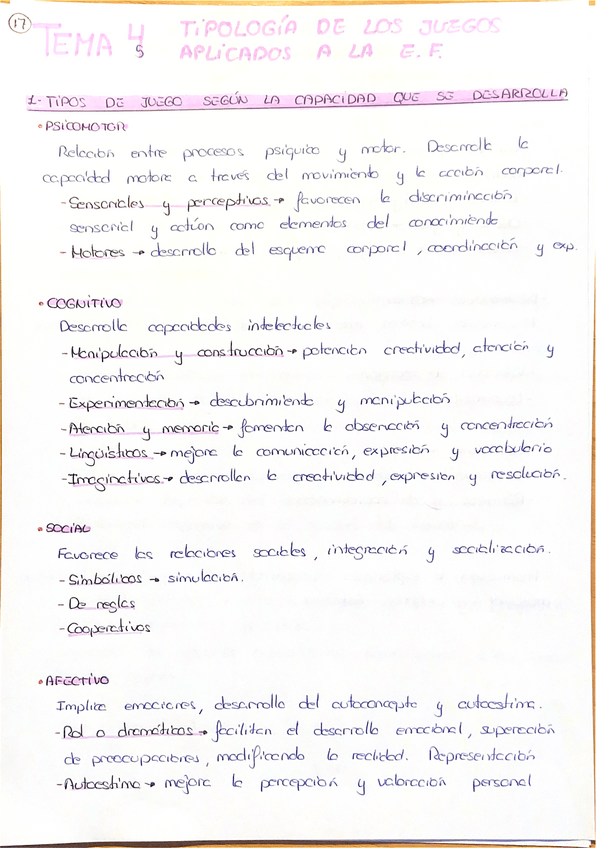 17
TEMA 4s TIPOLOGÍA DE LOS JUEGOS
APLICADOS A LA E.F.
1- TIPOS DE JUEGO SEGÚN LA CAPACIDAD QUE SE DESARROLLA
• PSICOMOTOR
Relación entre procesos psíquico y motor. Desarrolla la
capacidad motora a través del movimiento y la acción corporal.
- Sensoriales y perceptivos → favorecen la discriminación
sensorial y actúan como elementos del conocimiento
- Motores → desarrollo del esquema corporal, coordinación y exp.
• COGNITIVO
Desarrolla capacidades intelectuales
- Manipulación y construcción → potencian creatividad, atención y
concentración
- Experimentación → descubrimiento y manipulación
- Atención y memoria → fomentan la observación y concentración
- Lingüísticos → mejora la comunicación, expresión y vocabulario
- Imaginativos → desarrollan la creatividad, expresión y resolución.
• SOCIAL
Favorece las relaciones sociables, integración y sociabilización.
- Simbólicos → simulación.
- De reglas
- Cooperativos
• AFECTIVO
Implica emociones, desarrollo del autoconcepto y autoestima.
- Rol o dramáticos → facilitan el desarrollo emocional, superación
de preocupaciones, modificando la realidad. Representación
- Autoestima → mejora la percepción y valoración personal